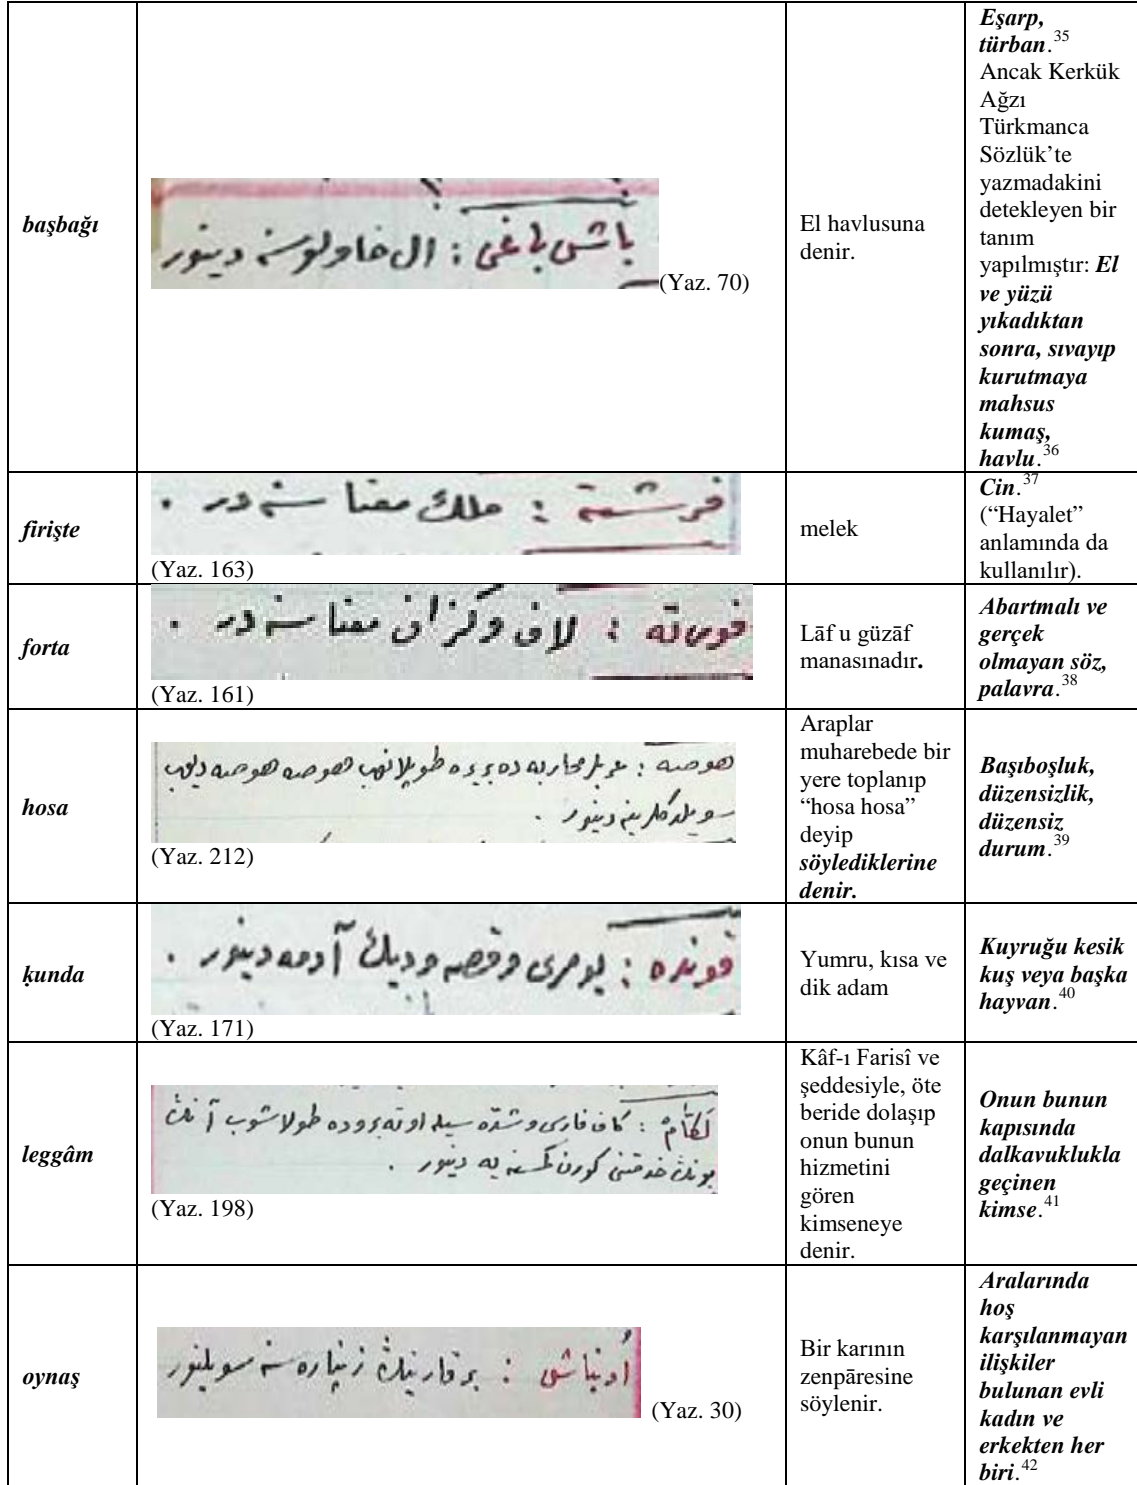 başbağı
باش باغى : ال خاولوسنه دينور
(Yaz. 70)
El havlusuna
denir.
Eşarp,
türban.35
Ancak Kerkük
Ağzı
Türkmanca
Sözlük’te
yazmadakini
detekleyen bir
tanım
yapılmıştır: El
ve yüzü
yıkadıktan
sonra, sıvayıp
kurutmaya
mahsus
kumaş,
havlu.36
firişte
فرشته : ملك معناسنه در .
(Yaz. 163)
melek
Cin.37
(“Hayalet”
anlamında da
kullanılır).
forta
فورته : لاف وكزاف معناسنه در .
(Yaz. 161)
Lāf u güzāf
manasınadır.
Abartmalı ve
gerçek
olmayan söz,
palavra.38
hosa
هوصه : عربلر محاربه ده بريره طوپلانوب هوصه هوصه ديوب
سويلدكلرينه دينور .
(Yaz. 212)
Araplar
muharebede bir
yere toplanıp
“hosa hosa”
deyip
söylediklerine
denir.
Başıboşluk,
düzensizlik,
düzensiz
durum.39
ḳunda
قونده : يومرى وقصه وديك آدمه دينور .
(Yaz. 171)
Yumru, kısa ve
dik adam
Kuyruğu kesik
kuş veya başka
hayvan.40
leggâm
لكّام : كاف فارسى وشدّه سيله اوته بروده طولاشوب آنك
بونك خدمتنى كورن كمسنه يه دينور .
(Yaz. 198)
Kâf-ı Farisî ve
şeddesiyle, öte
beride dolaşıp
onun bunun
hizmetini
gören
kimseneye
denir.
Onun bunun
kapısında
dalkavuklukla
geçinen
kimse.41
oynaş
اُويناش : بر قارينك زنپاره سنه سويلنور
(Yaz. 30)
Bir karının
zenpāresine
söylenir.
Aralarında
hoş
karşılanmayan
ilişkiler
bulunan evli
kadın ve
erkekten her
biri.42